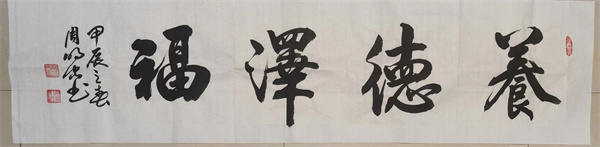 養德澤福
甲辰之春
周明亮书